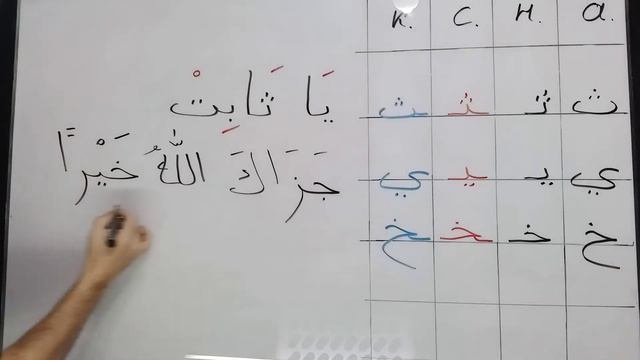 К. С. Н. а.
ث ثـ ـثـ ـث
ي يـ ـيـ ـي
خ خـ ـخـ ـخ
يَا ثَابتْ
جَزَاكَ اللّٰهُ خَيْرًا